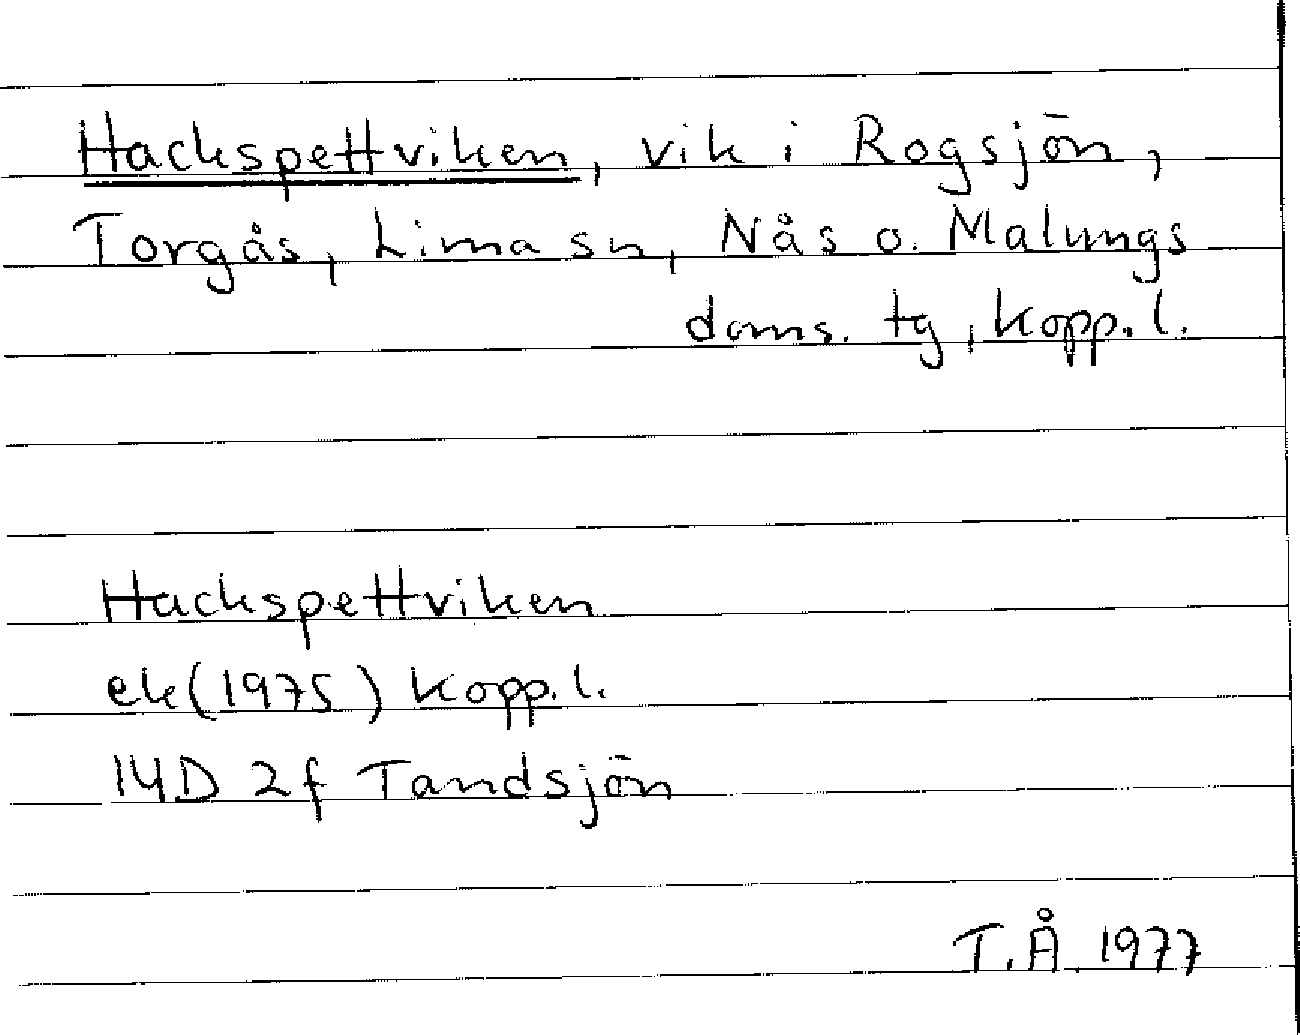 Hackspettviken, vik i Rogsjön,
Torgås, Lima sn, Nås o. Malungs
doms. tg, Kopp. l.
Hackspettviken
ek (1975) Kopp. l.
14D 2f Tandsjön
T.Å. 1977